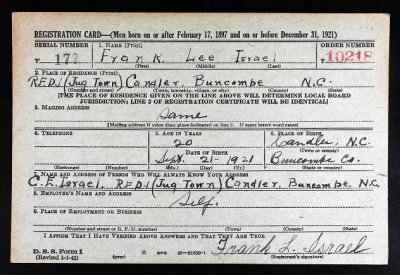 REGISTRATION CARD—(Men born on or after February 17, 1897 and on or before December 31, 1921)
SERIAL NUMBER 1. NAME (Print) ORDER NUMBER
T. 177 Frank Lee Israel 10218
(First) (Middle) (Last)
2. PLACE OF RESIDENCE (Print)
R.F.D.1 (Jug Town) Candler, Buncombe N.C.
(Number and street) (Town, township, village, or city) (County) (State)
[THE PLACE OF RESIDENCE GIVEN ON THE LINE ABOVE WILL DETERMINE LOCAL BOARD
JURISDICTION; LINE 2 OF REGISTRATION CERTIFICATE WILL BE IDENTICAL]
3. MAILING ADDRESS
Same
[Mailing address if other than place indicated on line 2. If same insert word same]
4. TELEPHONE 5. AGE IN YEARS 6. PLACE OF BIRTH
20 Candler, N.C.
DATE OF BIRTH (Town or county)
Sept. 21- 1921 Buncombe Co.
(Exchange) (Number) (Mo.) (Day) (Yr.) (State or country)
7. NAME AND ADDRESS OF PERSON WHO WILL ALWAYS KNOW YOUR ADDRESS
C.E. Israel, R.F.D.1 (Jug Town) Candler, Buncombe, N.C.
8. EMPLOYER'S NAME AND ADDRESS
Self.
9. PLACE OF EMPLOYMENT OR BUSINESS
(Number and street or R. F. D. number) (Town) (County) (State)
I AFFIRM THAT I HAVE VERIFIED ABOVE ANSWERS AND THAT THEY ARE TRUE.
D. S. S. Form 1 GPO 16—21630-1 Frank L. Israel
(Revised 1-1-42) (Registrant's signature)